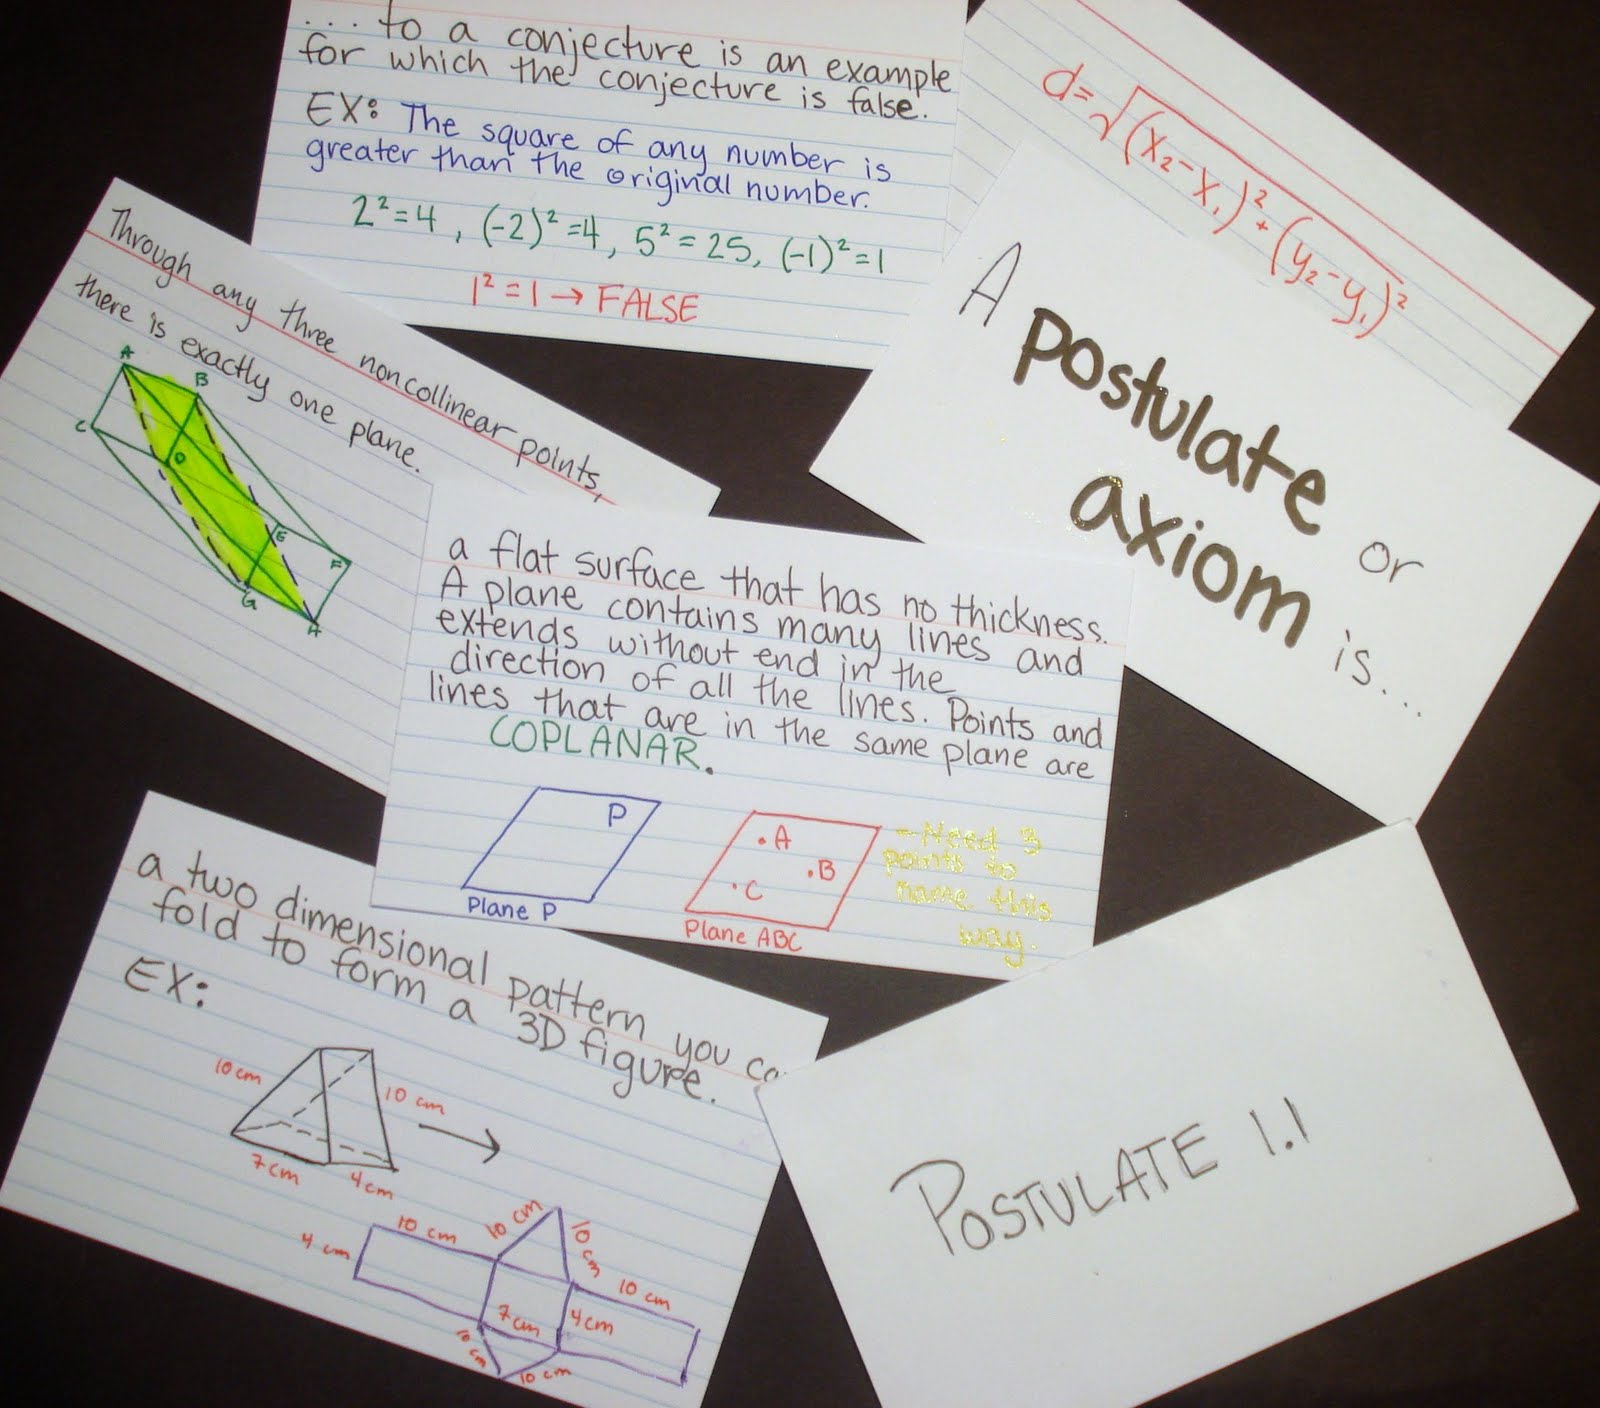 ... to a conjecture is an example
for which the conjecture is false.
EX: The square of any number is
greater than the original number.
2² = 4, (-2)² = 4, 5² = 25, (-1)² = 1
1² = 1 → FALSE
d = √(x₂ - x₁)² + (y₂ - y₁)²
A postulate or
axiom is...
Through any three noncollinear points,
there is exactly one plane.
A
B
C
D
E
F
G
H
a flat surface that has no thickness.
A plane contains many lines and
extends without end in the
direction of all the lines. Points and
lines that are in the same plane are
COPLANAR.
P
Plane P
A
B
C
Plane ABC
- Need 3
points to
name this
way.
a two dimensional pattern you
fold to form a 3D figure.
EX:
10 cm
10 cm
7 cm
4 cm
10 cm
10 cm
10 cm
4 cm
10 cm
7 cm
4 cm
10 cm
10 cm
POSTULATE 1.1